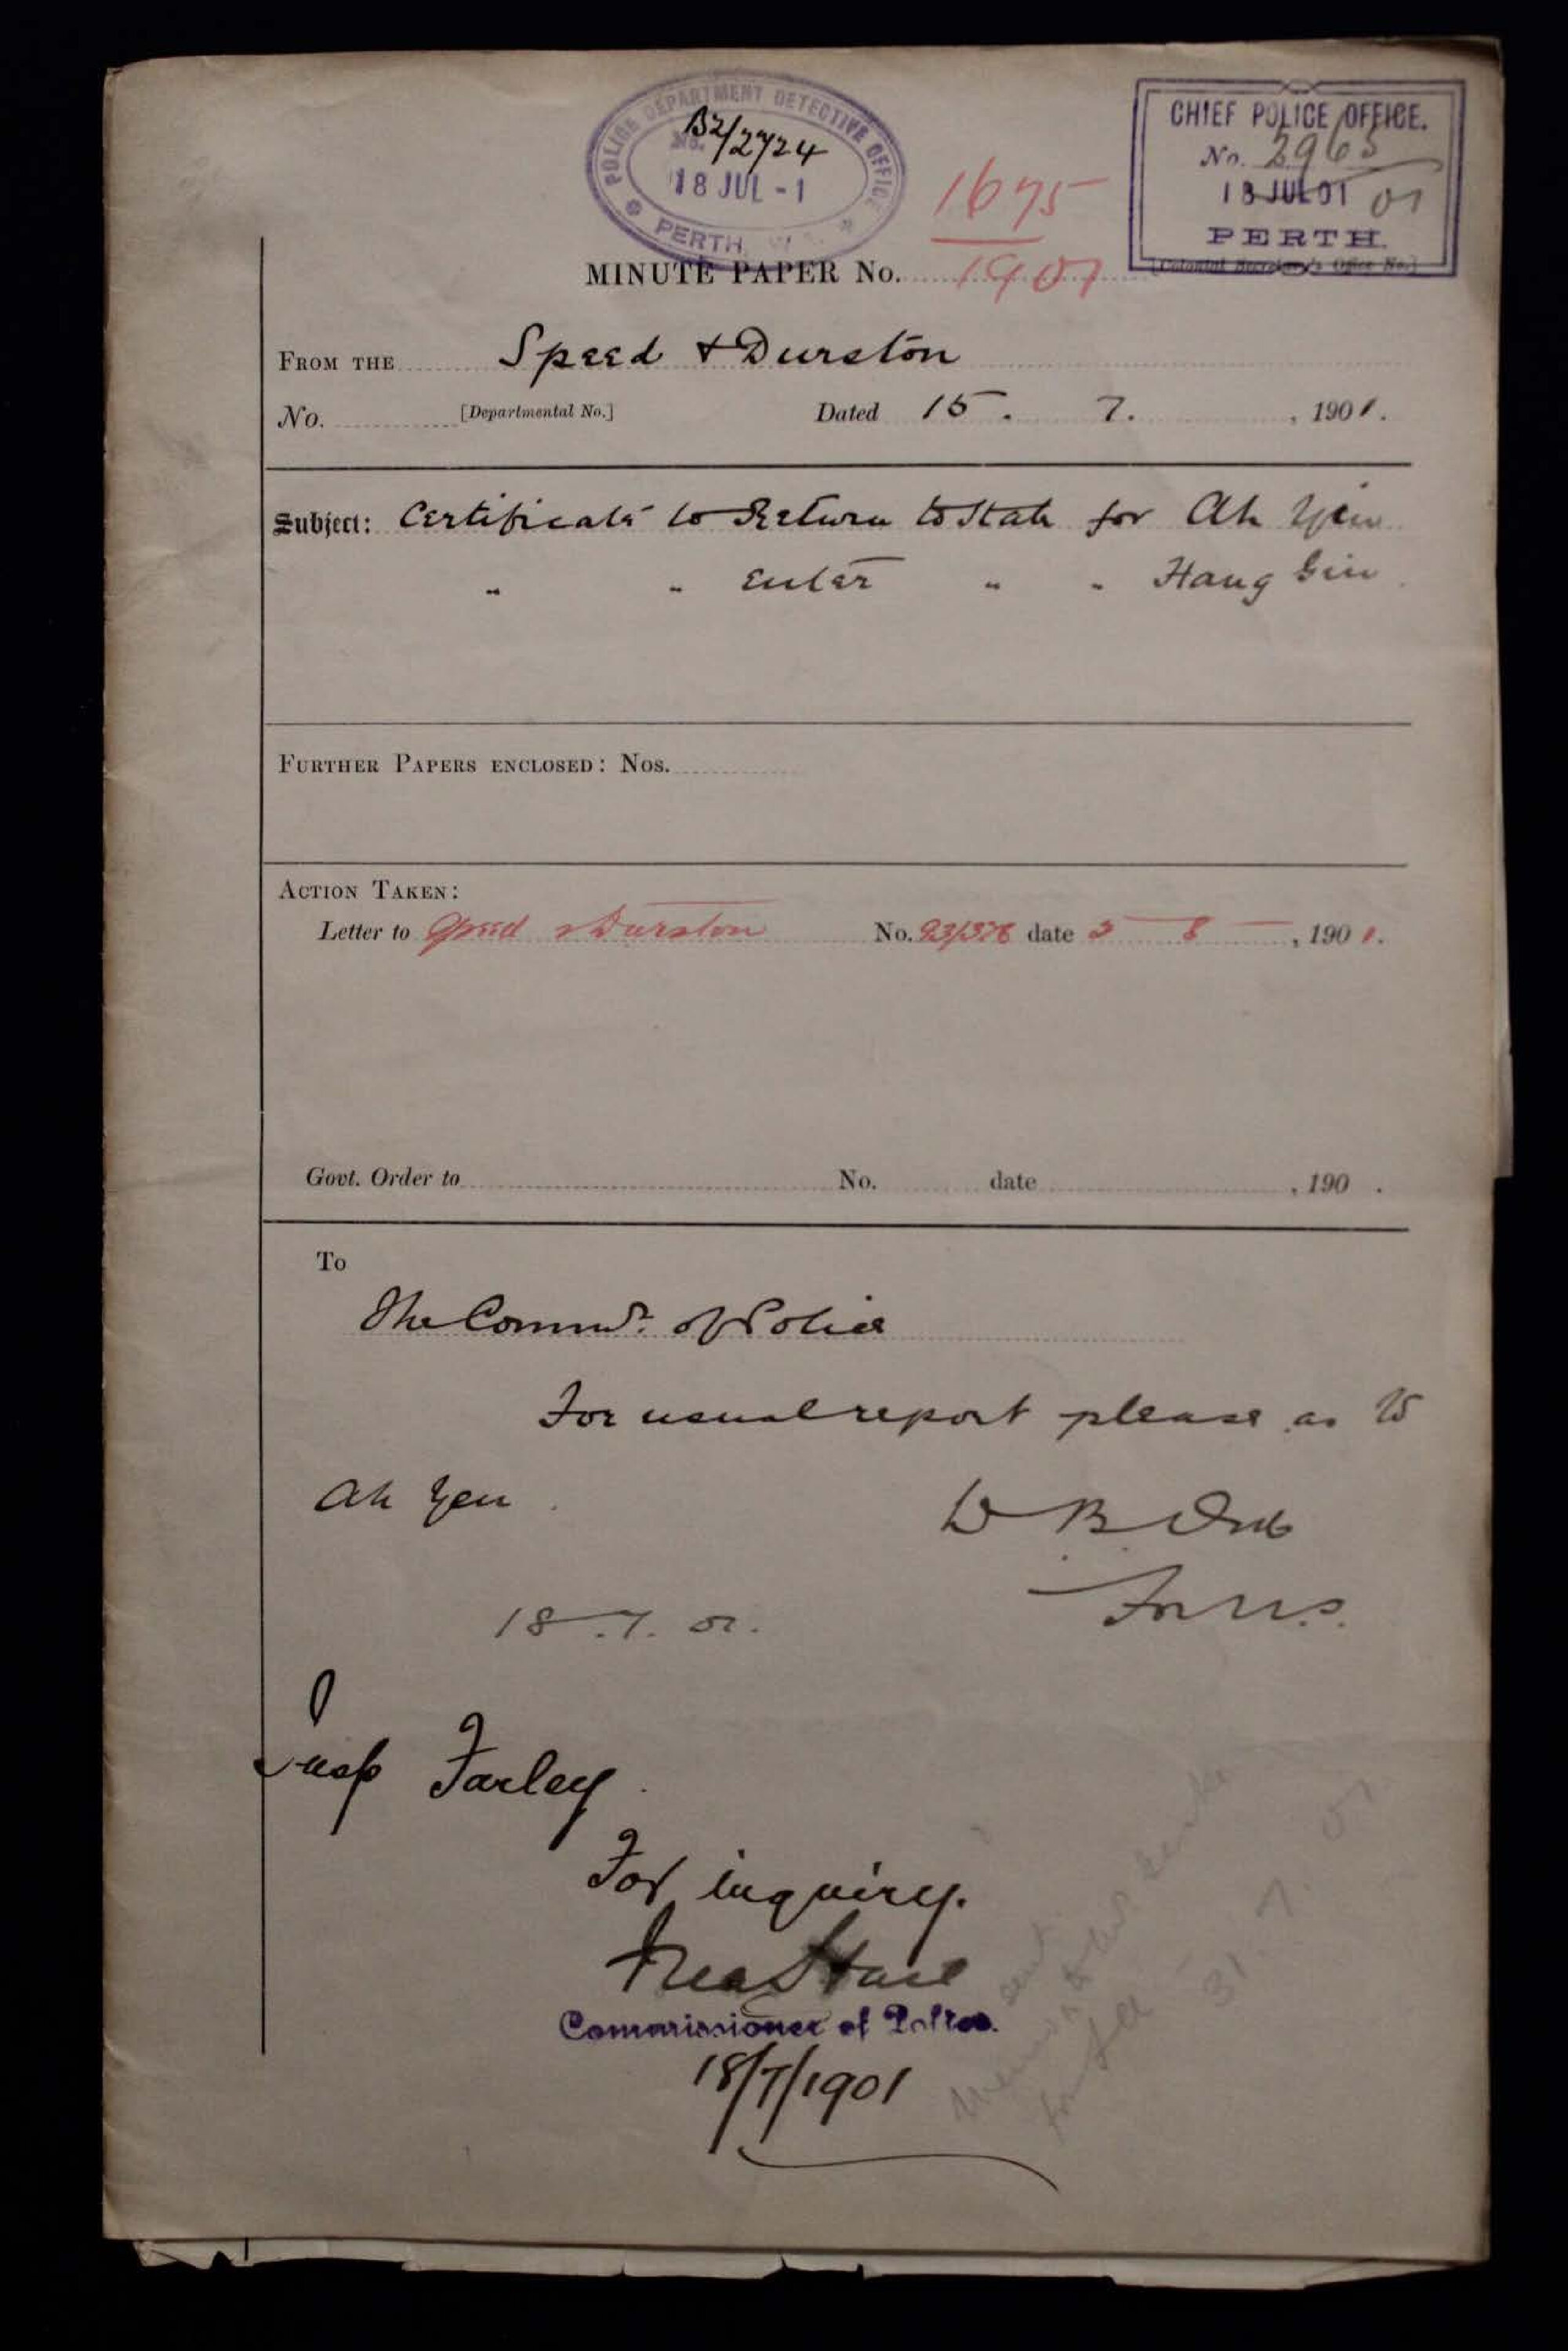 POLICE DEPARTMENT DETECTIVE OFFICE
No. B2/2724
18 JUL - 1
PERTH
CHIEF POLICE OFFICE.
No. 2965
18 JUL 01 01
PERTH.
[Colonial Secretary's Office No.]
1675
MINUTE PAPER No. 1901
FROM THE Speed & Durston
No. [Departmental No.] Dated 15. 7. , 1901.
Subject: Certificate to Return to State for Ah Yen
" " Enter " " Hang Gin
FURTHER PAPERS ENCLOSED: Nos.
ACTION TAKEN:
Letter to Speed & Durston No. date 2 8 , 1901.
Govt. Order to No. date , 190 .
To
The Commr. of Police
For usual report please as to
Ah Yen
W B
For U.S.
18.7.01.
Insp Farley.
For inquiry.
Fred Hare
Commissioner of Police.
18/7/1901
31.7.01